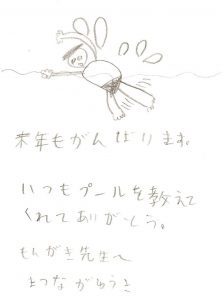 来年もがんばります。
いつもプールを教えて
くれてありがとう。
もんがき先生へ
まつながゆうき